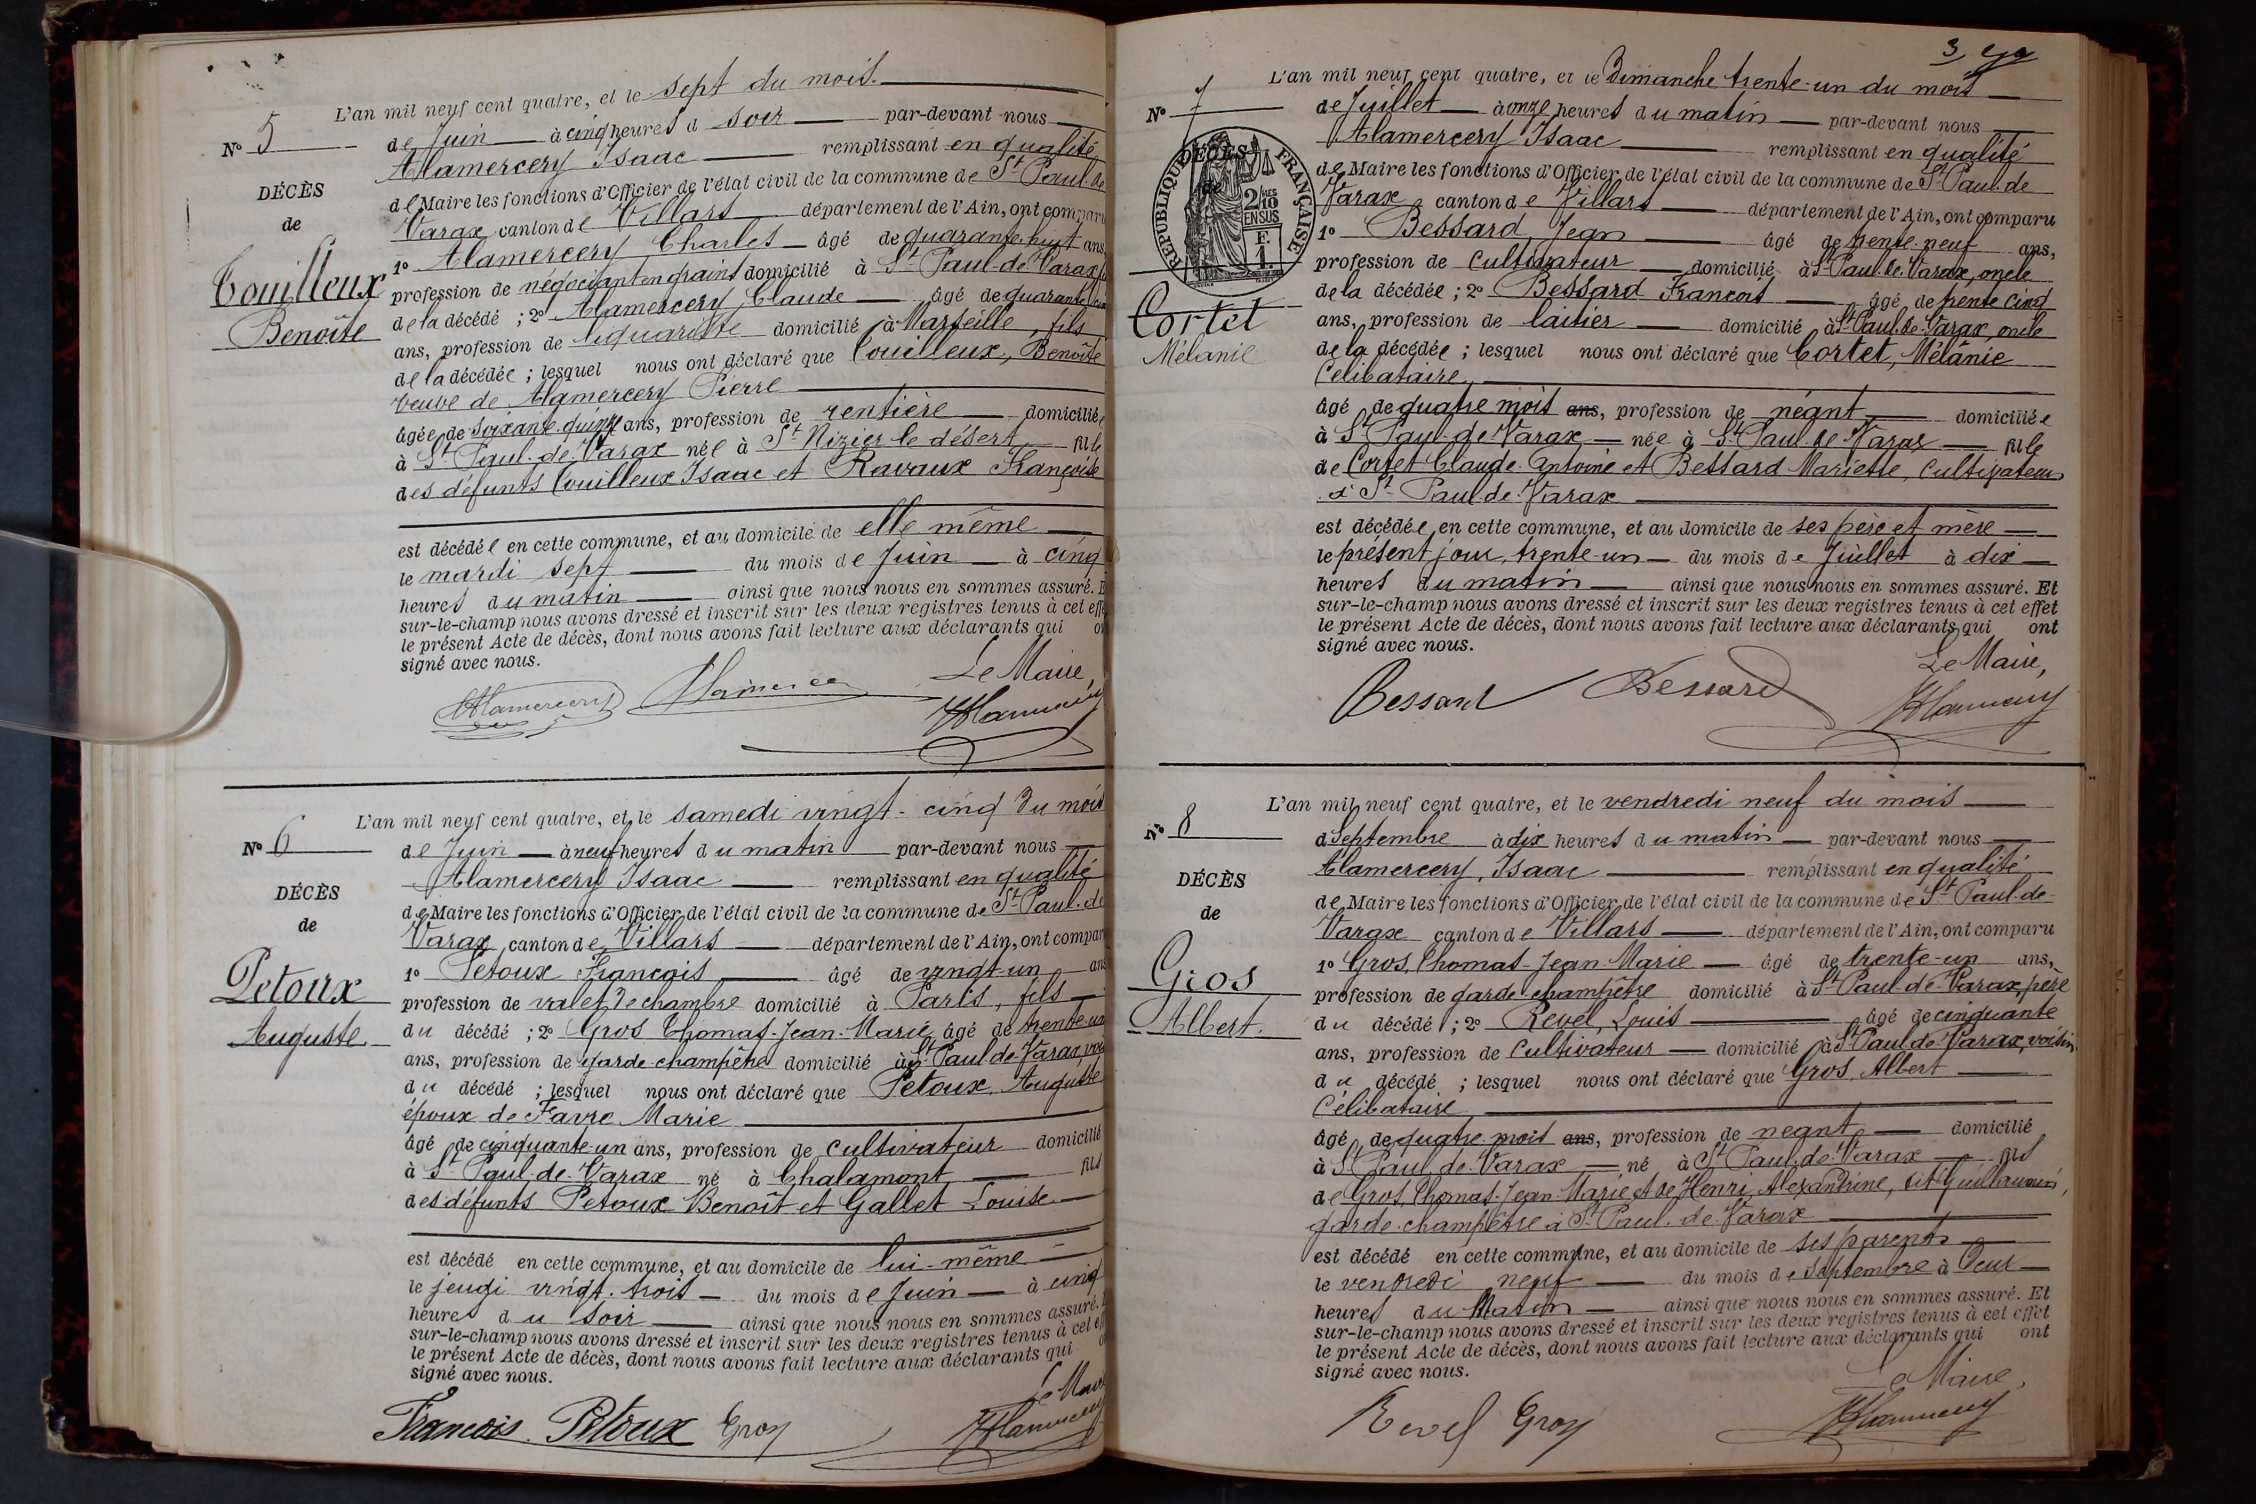 L'an mil neuf cent quatre, et le sept du mois
No 5
de Juin à cinq heures d soir par-devant nous
Alamercery Isaac remplissant en qualité
de Maire les fonctions d'Officier de l'état civil de la commune de St Paul de
Varax canton de Villars département de l'Ain, ont comparu
DÉCÈS
de
Couilleux
Benoîte
1o Alamercery Charles âgé de quarante huit ans
profession de négociant en grains domicilié à St Paul de Varax
de la décédé ; 2o Alamercery Claude âgé de quarante
ans, profession de liquoriste domicilié à Marseille, fils
de la décédée ; lesquel nous ont déclaré que Couilleux, Benoîte
veuve de Alamercery Pierre
âgée de soixante quinze ans, profession de rentière domiciliée
à St Paul de Varax née à St Nizier le désert fille
des défunts Couilleux Isaac et Ravaux Françoise
est décédée en cette commune, et au domicile de elle même
le mardi sept du mois de Juin à cinq
heures du matin ainsi que nous nous en sommes assuré.
sur-le-champ nous avons dressé et inscrit sur les deux registres tenus à cet effe
le présent Acte de décès, dont nous avons fait lecture aux déclarants qui
signé avec nous.
Le Maire,
Alamercery
L'an mil neuf cent quatre, et le samedi vingt-cinq du mois
No 6
de Juin à neuf heures du matin par-devant nous
Alamercery Isaac remplissant en qualité
de Maire les fonctions d'Officier de l'état civil de la commune de St Paul de
Varax, canton de Villars département de l'Ain, ont compar
DÉCÈS
de
Petoux
Auguste
1o Petoux François âgé de vingt-un ans
profession de valet de chambre domicilié à Paris, fils
du décédé ; 2o Gros Thomas-Jean-Marie âgé de trente-un
ans, profession de garde-champêtre domicilié à St Paul de Varax,
du décédé ; lesquel nous ont déclaré que Petoux Auguste
époux de Favre Marie
âgé de cinquante-un ans, profession de cultivateur domicilié
à St Paul de Varax né à Chalamont fils
des défunts Petoux Benoît et Gallet Louise
est décédé en cette commune, et au domicile de lui-même
le jeudi vingt-trois du mois de Juin à cinq
heures du soir ainsi que nous nous en sommes assuré.
sur-le-champ nous avons dressé et inscrit sur les deux registres tenus à cet
le présent Acte de décès, dont nous avons fait lecture aux déclarants qui
signé avec nous.
Le Maire
François Petoux Gros
3
L'an mil neuf cent quatre, et le Dimanche trente-un du mois
No 7
de Juillet à onze heures du matin par-devant nous
Alamercery Isaac remplissant en qualité
de Maire les fonctions d'Officier de l'état civil de la commune de St Paul de
Varax canton de Villars département de l'Ain, ont comparu
DÉCÈS
de
RÉPUBLIQUE FRANÇAISE
2/10 EN SUS
F. 1.
Cortet
Mélanie
1o Bessard Jean âgé de trente-neuf ans,
profession de cultivateur domicilié à St Paul de Varax, oncle
de la décédée ; 2o Bessard François âgé de trente cinq
ans, profession de laitier domicilié à St Paul de Varax, oncle
de la décédée ; lesquel nous ont déclaré que Cortet, Mélanie
Célibataire
âgé de quatre mois ans, profession de néant domiciliée
à St Paul de Varax née à St Paul de Varax fille
de Cortet Claude Antoine et Bessard Mariette, cultivateurs
à St Paul de Varax
est décédée en cette commune, et au domicile de ses père et mère
le présent jour, trente-un du mois de Juillet à dix
heures du matin ainsi que nous nous en sommes assuré. Et
sur-le-champ nous avons dressé et inscrit sur les deux registres tenus à cet effet
le présent Acte de décès, dont nous avons fait lecture aux déclarants qui ont
signé avec nous.
Le Maire,
Bessard Bessard
L'an mil neuf cent quatre, et le vendredi neuf du mois
No 8
d Septembre à dix heures du matin par-devant nous
Alamercery, Isaac remplissant en qualité
de Maire les fonctions d'Officier de l'état civil de la commune de St Paul de
Varax canton de Villars département de l'Ain, ont comparu
DÉCÈS
de
Gros
Albert.
1o Gros, Thomas-Jean-Marie âgé de trente-un ans,
profession de garde champêtre domicilié à St Paul de Varax, père
du décédé ; 2o Revel, Louis âgé de cinquante
ans, profession de Cultivateur domicilié à St Paul de Varax, voisin
du décédé ; lesquel nous ont déclaré que Gros, Albert
Célibataire
âgé de quatre mois ans, profession de néant domicilié
à St Paul de Varax né à St Paul de Varax fils
de Gros, Thomas-Jean-Marie et de Henri, Alexandrine, dit
garde champêtre à St Paul de Varax
est décédé en cette commune, et au domicile de ses parents
le vendredi neuf du mois de Septembre à Deux
heures du Matin ainsi que nous nous en sommes assuré. Et
sur-le-champ nous avons dressé et inscrit sur les deux registres tenus à cet effet
le présent Acte de décès, dont nous avons fait lecture aux déclarants qui ont
signé avec nous.
Le Maire,
Revel Gros